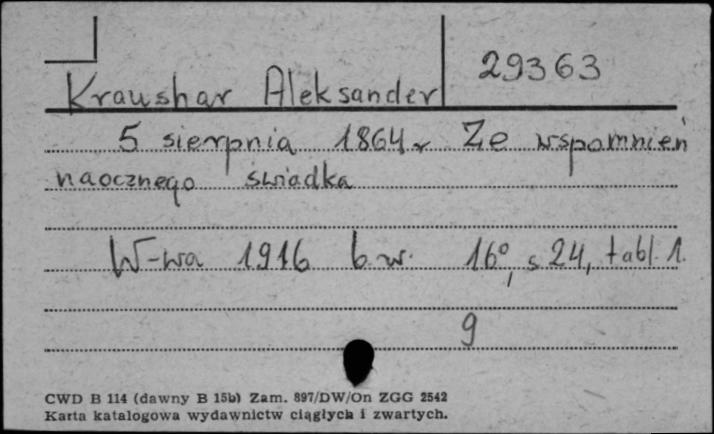 29363
Kraushar Aleksander
5 sierpnia 1864 r Ze wspomnień
naocznego świadka
W-wa 1916 b.w. 16°, s 24, tabl. 1.
9
CWD B 114 (dawny B 15b) Zam. 897/DW/On ZGG 2542
Karta katalogowa wydawnictw ciągłych i zwartych.